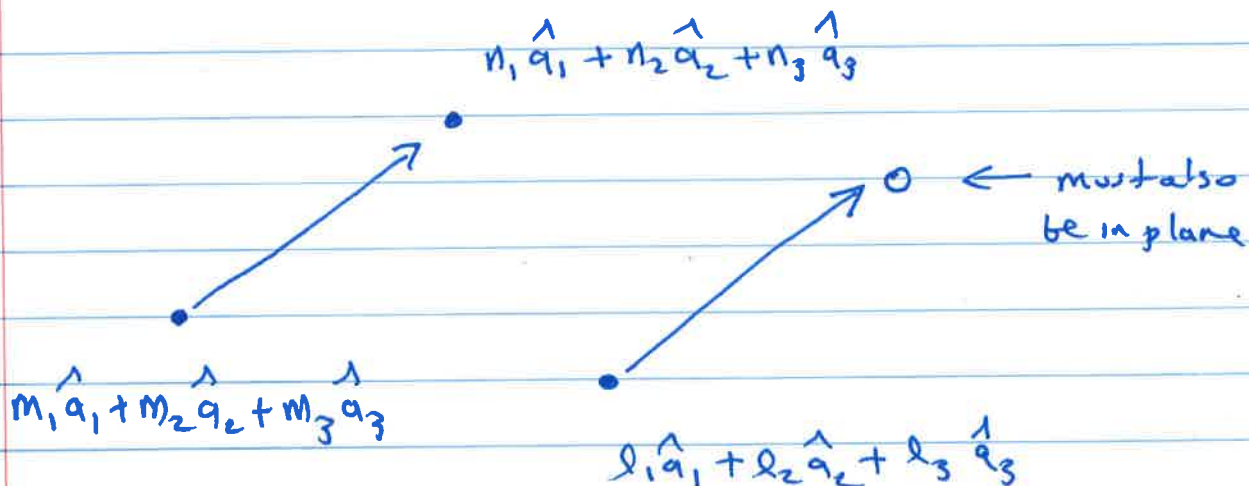 n₁ â₁ + n₂ â₂ + n₃ â₃
← must also
be in plane
m₁ â₁ + m₂ â₂ + m₃ â₃
l₁ â₁ + l₂ â₂ + l₃ â₃